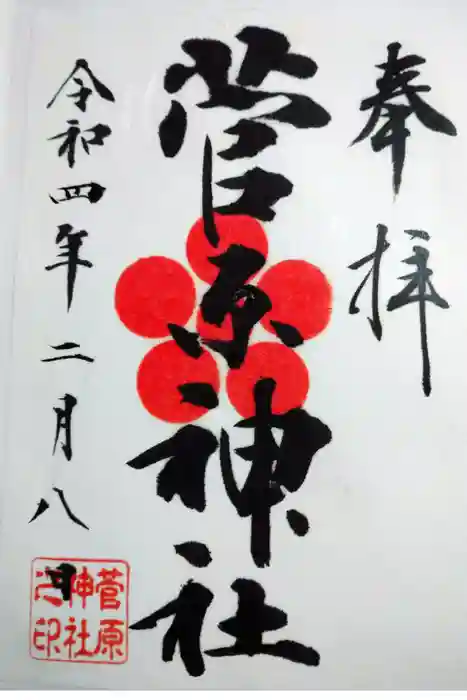 奉拝
菅原神社
令和四年二月八日
菅原
神社
之印